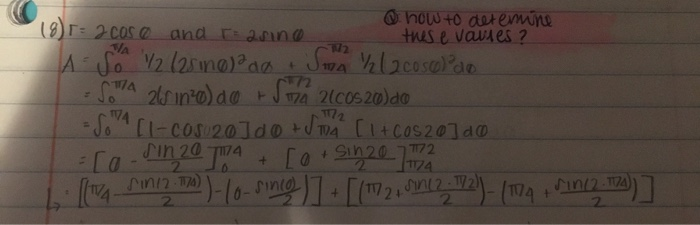 (8) r = 2cosθ and r = 2sinθ
Q how to determine these values?
A = ∫₀^(π/4) 1/2 (2sinθ)² dθ + ∫_(π/4)^(π/2) 1/2 (2cosθ)² dθ
= ∫₀^(π/4) 2(sin²θ) dθ + ∫_(π/4)^(π/2) 2(cos2θ) dθ
= ∫₀^(π/4) [1-cos2θ] dθ + ∫_(π/4)^(π/2) [1+cos2θ] dθ
= [θ - sin2θ/2]₀^(π/4) + [θ + sin2θ/2]_(π/4)^(π/2)
↳ = [(π/4 - sin(2·π/4)/2) - (0 - sin(0)/2)] + [(π/2 + sin(2·π/2)/2) - (π/4 + sin(2·π/4)/2)]